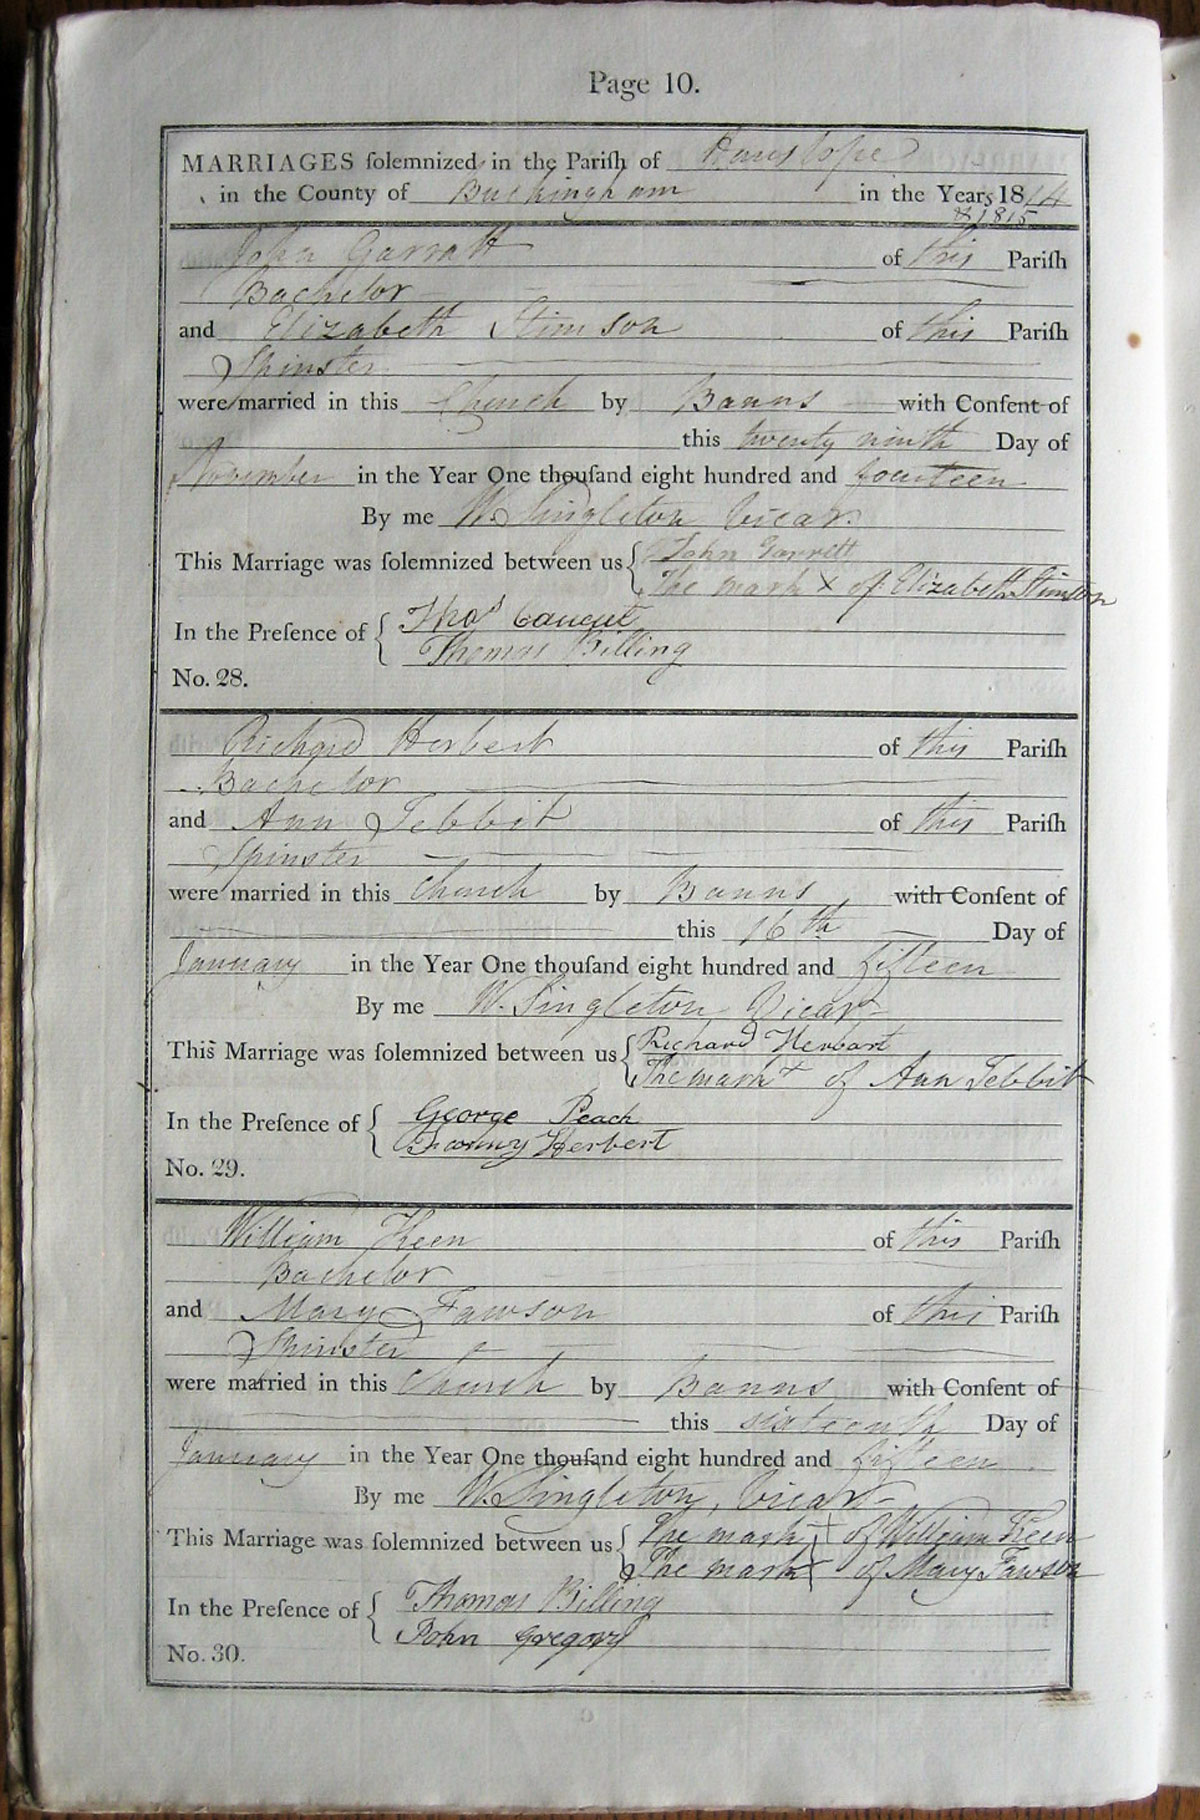 Page 10.
MARRIAGES ſolemnized in the Pariſh of Hanslope
in the County of Buckingham in the Years 1814
& 1815
John Garratt of this Pariſh
Bachelor
and Elizabeth Stimson of this Pariſh
Spinster
were married in this Church by Banns with Conſent of
this twenty ninth Day of
November in the Year One thouſand eight hundred and fourteen
By me W. Singleton Vicar.
This Marriage was ſolemnized between us John Garrett
The mark x of Elizabeth Stimson
In the Preſence of Thos
Thomas Billing
No. 28.
Richard Herbert of this Pariſh
Bachelor
and Ann Tebbit of this Pariſh
Spinster
were married in this Church by Banns with Conſent of
this 16th Day of
January in the Year One thouſand eight hundred and fifteen
By me W. Singleton, Vicar
This Marriage was ſolemnized between us Richard Herbart
The mark x of Ann Tebbit
In the Preſence of George Peach
Herbert
No. 29.
William Keen of this Pariſh
Bachelor
and Mary Fawson of this Pariſh
Spinster
were married in this Church by Banns with Conſent of
this sixteenth Day of
January in the Year One thouſand eight hundred and fifteen
By me W. Singleton, Vicar
This Marriage was ſolemnized between us The mark + of William Keen
The mark x of Mary Fawson
In the Preſence of Thomas Billing
John Gregory
No. 30.